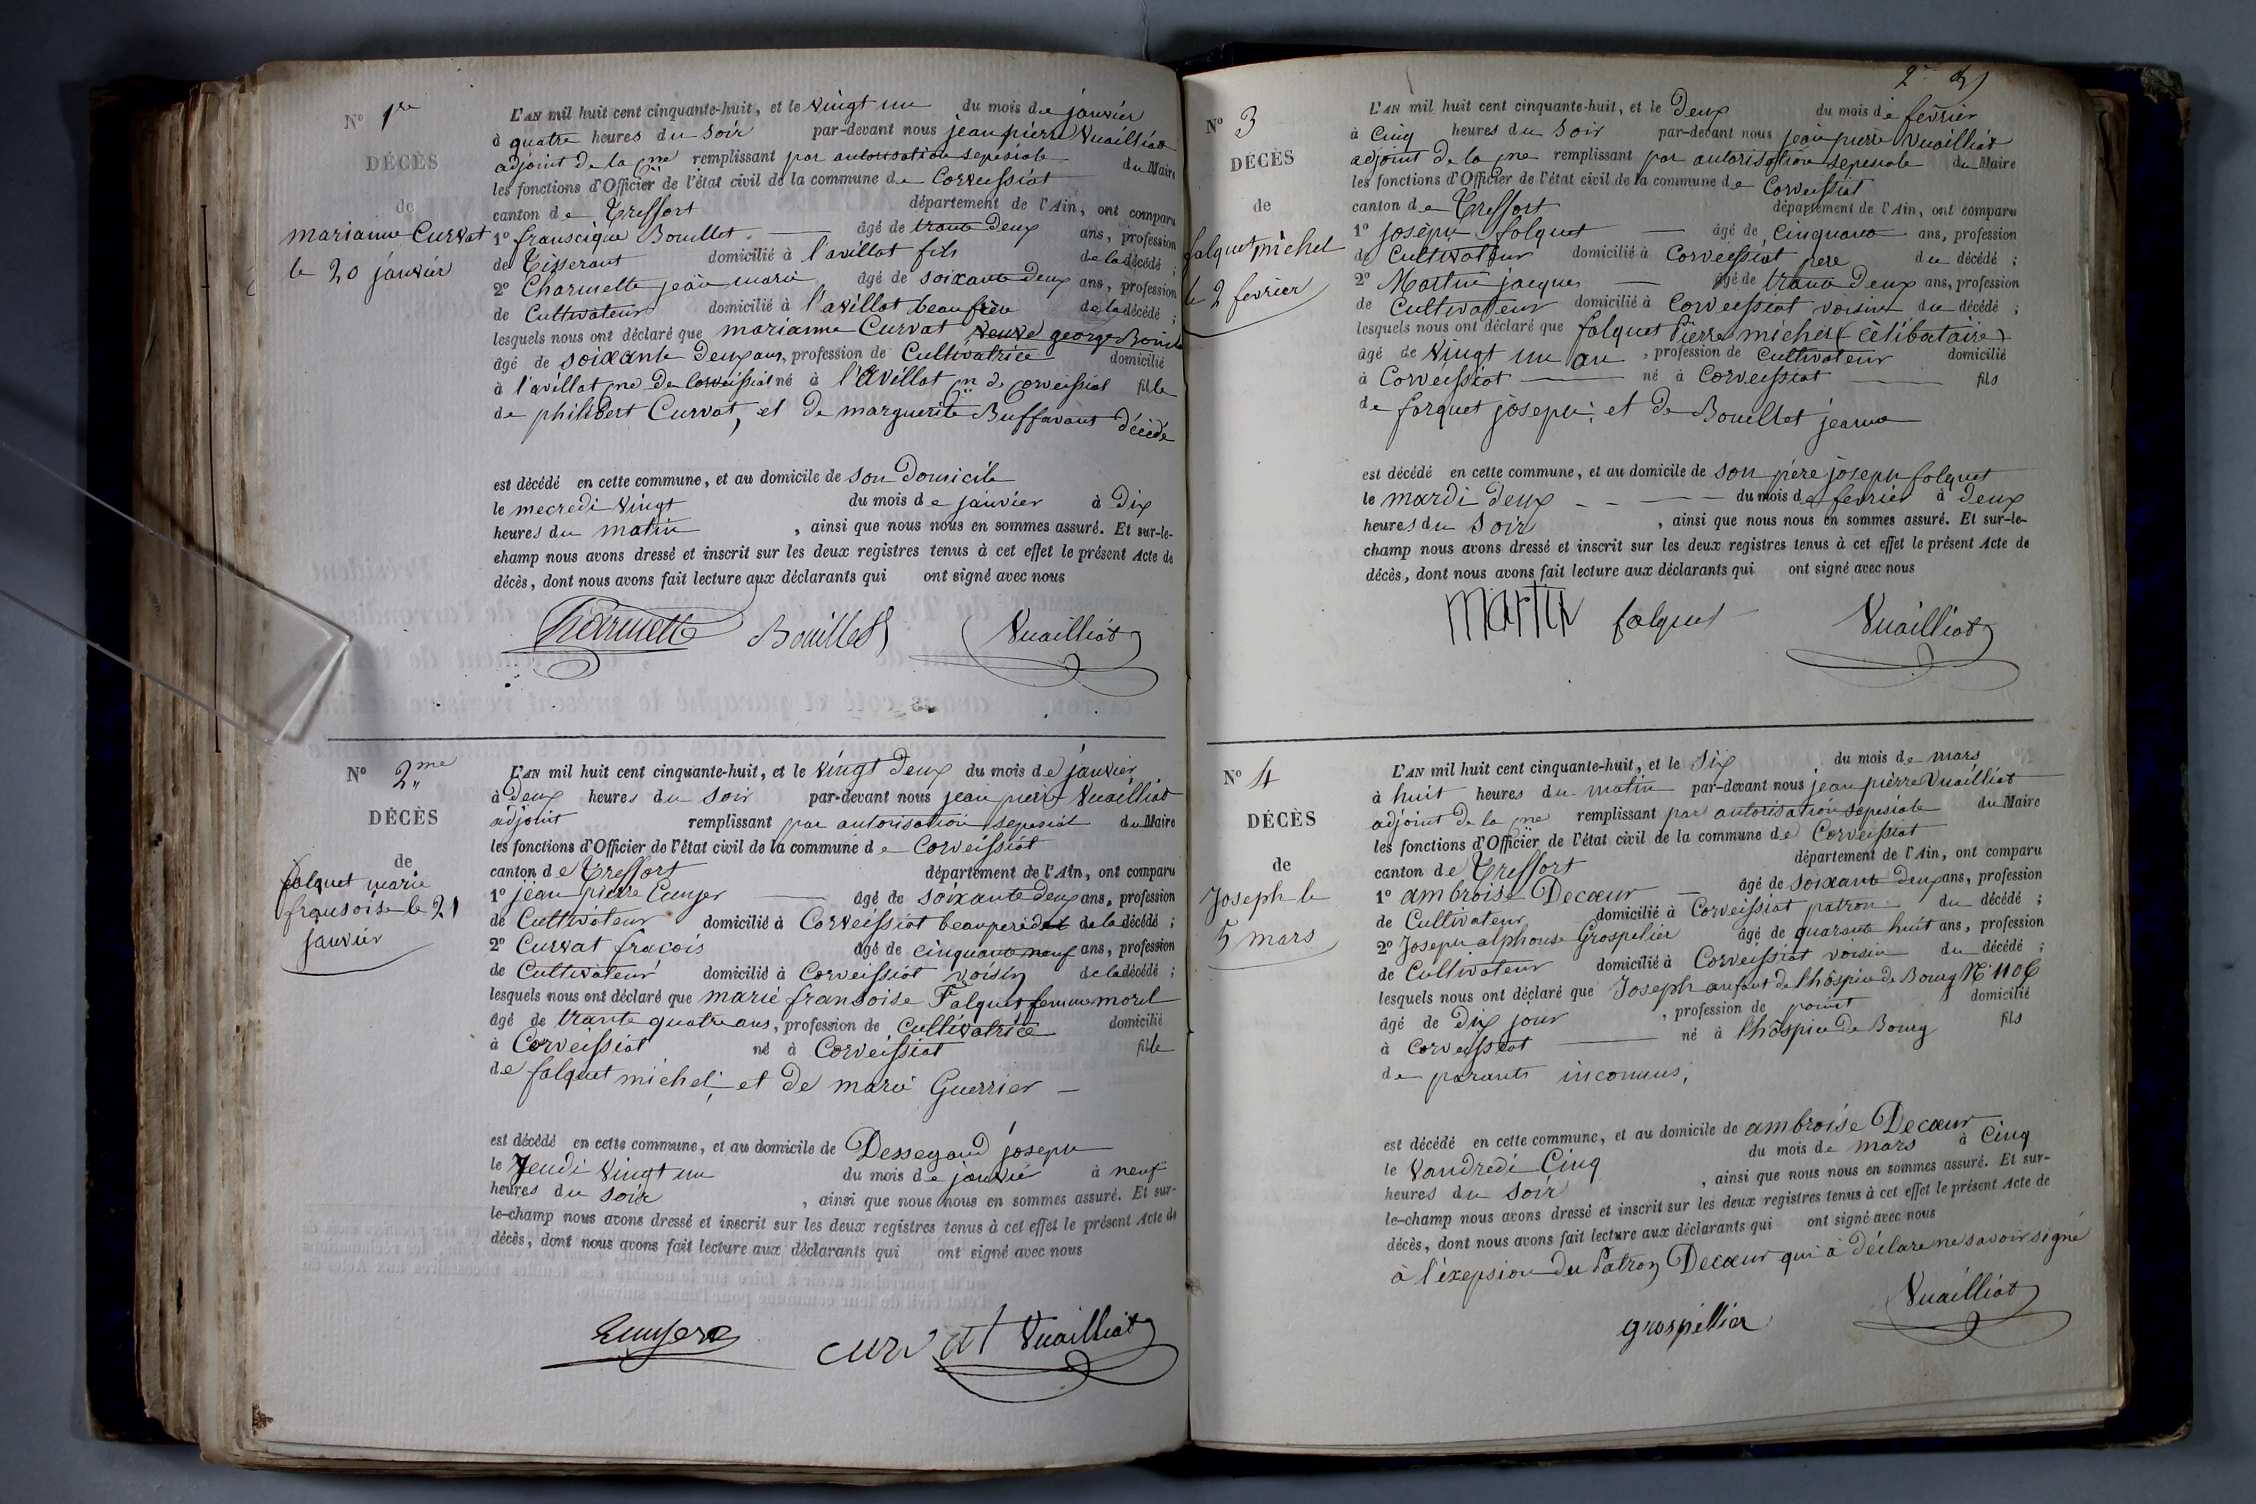 N° 1re
DÉCÈS
de
marianne Curvat
le 20 janvier
L'AN mil huit cent cinquante-huit, et le vingt un du mois de janvier
à quatre heures du soir par-devant nous jean pierre Vuailliat
adjoint de la mne remplissant par autorisation sepesiale du Maire
les fonctions d'Officier de l'état civil de la commune de Corveissiat
canton de Treffort département de l'Ain, ont comparu
1° franscique Bouillet âgé de trante deux ans, profession
de Tisserant domicilié à l'avillat fils de la décédé ;
2° Charmette jean marie âgé de soixante deux ans, profession
de Cultivateur domicilié à l'avillat beau frère de la décédé ;
lesquels nous ont déclaré que marianne Curvat veuve george Bouillet
âgé de soixante deux ans, profession de Cultivatrice domicilié
à l'avillat mne de Corveissiat né à l'avillat mne de Corveissiat fille
de philibert Curvat, et de marguerite Buffavant décédé
est décédé en cette commune, et au domicile de son domicile
le mecredi vingt du mois de janvier à dix
heures du matin , ainsi que nous nous en sommes assuré. Et sur-le-
champ nous avons dressé et inscrit sur les deux registres tenus à cet effet le présent Acte de
décès, dont nous avons fait lecture aux déclarants qui ont signé avec nous
Charmette Bouillet Vuailliat
N° 2me
DÉCÈS
de
falquet marie
fransoise le 21
janvier
L'AN mil huit cent cinquante-huit, et le vingt deux du mois de janvier
à deux heures du soir par-devant nous jean pierre Vuailliat
adjoint remplissant par autorisation sepesial du Maire
les fonctions d'Officier de l'état civil de la commune de Corveissiat
canton de Treffort département de l'Ain, ont comparu
1° jean pierre âgé de soixante deux ans, profession
de Cultivateur domicilié à Corveissiat beau pere de la décédé ;
2° Curvat fracois âgé de cinquante neuf ans, profession
de Cultivateur domicilié à Corveissiat voisin de la décédé ;
lesquels nous ont déclaré que marie fransoise Falquet femme morel
âgé de trante quatre ans, profession de Cultivatrice domicilié
à Corveissiat né à Corveissiat fille
de falquet michel, et de marie Guerrier
est décédé en cette commune, et au domicile de Dessegand joseph
le Jeudi vingt un du mois de janvié à neuf
heures du soir , ainsi que nous nous en sommes assuré. Et sur-
le-champ nous avons dressé et inscrit sur les deux registres tenus à cet effet le présent Acte de
décès, dont nous avons fait lecture aux déclarants qui ont signé avec nous
curvat Vuailliat
N° 3
DÉCÈS
de
falquet michel
le 2 fevrier
L'AN mil huit cent cinquante-huit, et le deux du mois de fevrier
à Cinq heures du soir par-devant nous jean pierre Vuailliat
adjoint de la mne remplissant par autorisation sepesiale du Maire
les fonctions d'Officier de l'état civil de la commune de Corveissiat
canton de Treffort département de l'Ain, ont comparu
1° joseph falquet âgé de Cinquante ans, profession
de Cultivateur domicilié à Corveissiat pere du décédé ;
2° Martin jacques âgé de trante deux ans, profession
de Cultivateur domicilié à Corveissiat voisin du décédé ;
lesquels nous ont déclaré que falquet Pierre michel (célibataire)
âgé de vingt un an , profession de Cultivateur domicilié
à Corveissiat né à Corveissiat fils
de farquet joseph, et de Bouillet jeanne
est décédé en cette commune, et au domicile de son père joseph falquet
le mardi deux du mois de fevrier à deux
heures du soir , ainsi que nous nous en sommes assuré. Et sur-le-
champ nous avons dressé et inscrit sur les deux registres tenus à cet effet le présent Acte de
décès, dont nous avons fait lecture aux déclarants qui ont signé avec nous
martin falquet Vuailliat
N° 4
DÉCÈS
de
Joseph le
5 mars
L'AN mil huit cent cinquante-huit, et le six du mois de mars
à huit heures du matin par-devant nous jean pierre Vuailliat
adjoint de la mne remplissant par autorisation sepesiale du Maire
les fonctions d'Officier de l'état civil de la commune de Corveissiat
canton de Treffort département de l'Ain, ont comparu
1° ambroise Decœur âgé de soixante deux ans, profession
de Cultivateur domicilié à Corveissiat patron du décédé ;
2° Joseph alphonse Grospelier âgé de quarante huit ans, profession
de Cultivateur domicilié à Corveissiat voisin du décédé ;
lesquels nous ont déclaré que Joseph anfant de l'hospice de Bourg N°
âgé de dix jour , profession de point domicilié
à Corveissiat né à l'hospice de Bourg fils
de parants inconnus,
est décédé en cette commune, et au domicile de ambroise Decœur
le vandredi Cinq du mois de mars à Cinq
heures du soir , ainsi que nous nous en sommes assuré. Et sur-
le-champ nous avons dressé et inscrit sur les deux registres tenus à cet effet le présent Acte de
décès, dont nous avons fait lecture aux déclarants qui ont signé avec nous
à l'exepsion du Patron Decœur qui à déclare ne savoir signé
grospellier Vuailliat